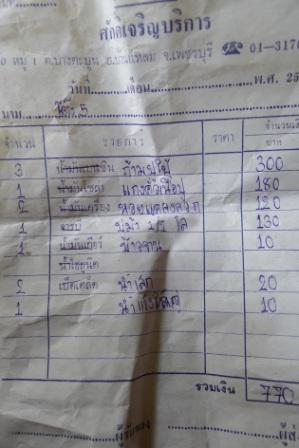 ศักดิ์เจริญบริการ
หมู่ 1 ต.บางตะบูน อ.บ้านแหลม จ.เพชรบุรี ☎ 01-3176
วันที่ เดือน พ.ศ. 25
นาม โต๊ะ 5
จำนวน รายการ ราคา จำนวนเงิน
บาท
3 น้ำมันเบนซิน 300
1 น้ำมันโซล่า 180
2 น้ำมันเครื่อง หอยแครงลวก 120
1 จารบี 130
1 น้ำมันเกียร์ ข้าวจาน 10
น้ำโซลูนิค
2 เบ็ดเตล็ด น้ำเล็ก 20
1 น้ำแข็งใหญ่ 10
รวมเงิน 770
ผู้รับของ